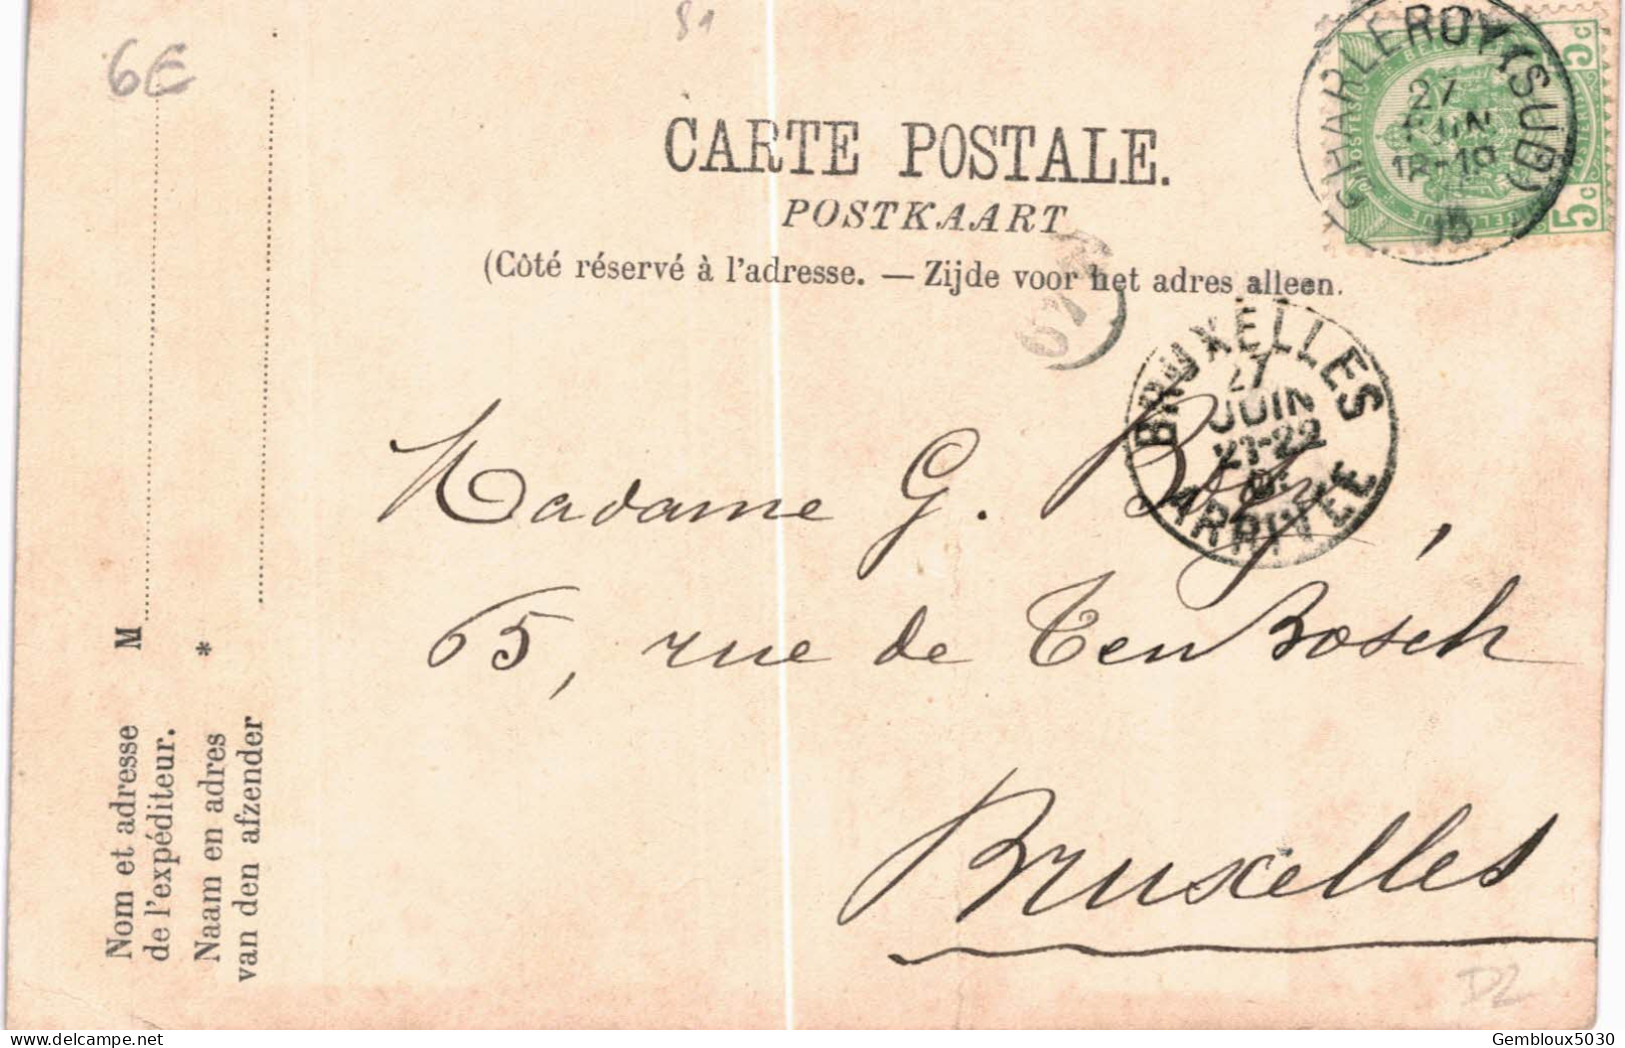 6E
81
CARTE POSTALE.
POSTKAART
(Côté réservé à l'adresse. — Zijde voor het adres alleen.
CHARLEROY (SUD)
27
JUIN
18-19
5c
5c
BRUXELLES
27
JUIN
21-22
ARRIVÉE
Madame G.
65, rue de Ten Bosch
Bruxelles
M
*
Nom et adresse
de l'expéditeur.
Naam en adres
van den afzender
D2
Gembloux5030